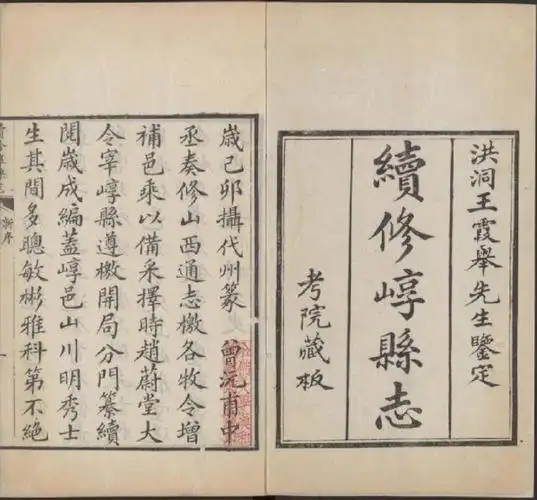 洪洞王霞舉先生鑒定
續修崞縣志
考院藏板
歲己卯攝代州篆 曾沅甫中
丞奏修山西通志檄各牧令增
補邑乘以備采擇時趙蔚堂大
令宰崞縣遵檄開局分門纂續
閱歲成編蓋崞邑山川明秀士
生其間多聰敏彬雅科第不絕
新序